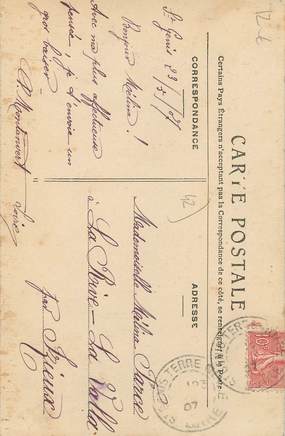 CARTE POSTALE
Certains Pays Étrangers n'acceptant pas la Correspondance de ce côté, se renseigner à la Poste
CORRESPONDANCE
ADRESSE
St Genis 23/5/07
Bonjour Mélina !
Avec ma plus affectueuse
pensée, je t'envoie un
gros baiser.
Mademoiselle Mélina
à La Rive - La Valla
par
Loire
12-b
12
10
ST GENIS TERRE
LOIRE
07